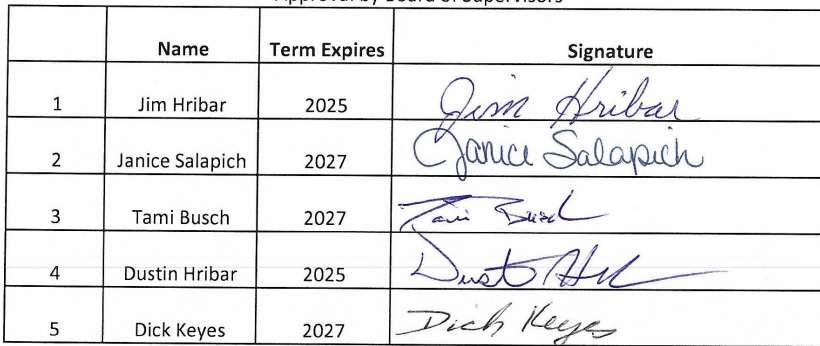 Approval by Board of Supervisors
Name Term Expires Signature
1 Jim Hribar 2025 Jim Hribar
2 Janice Salapich 2027 Janice Salapich
3 Tami Busch 2027 Tami Busch
4 Dustin Hribar 2025
5 Dick Keyes 2027 Dick Keyes